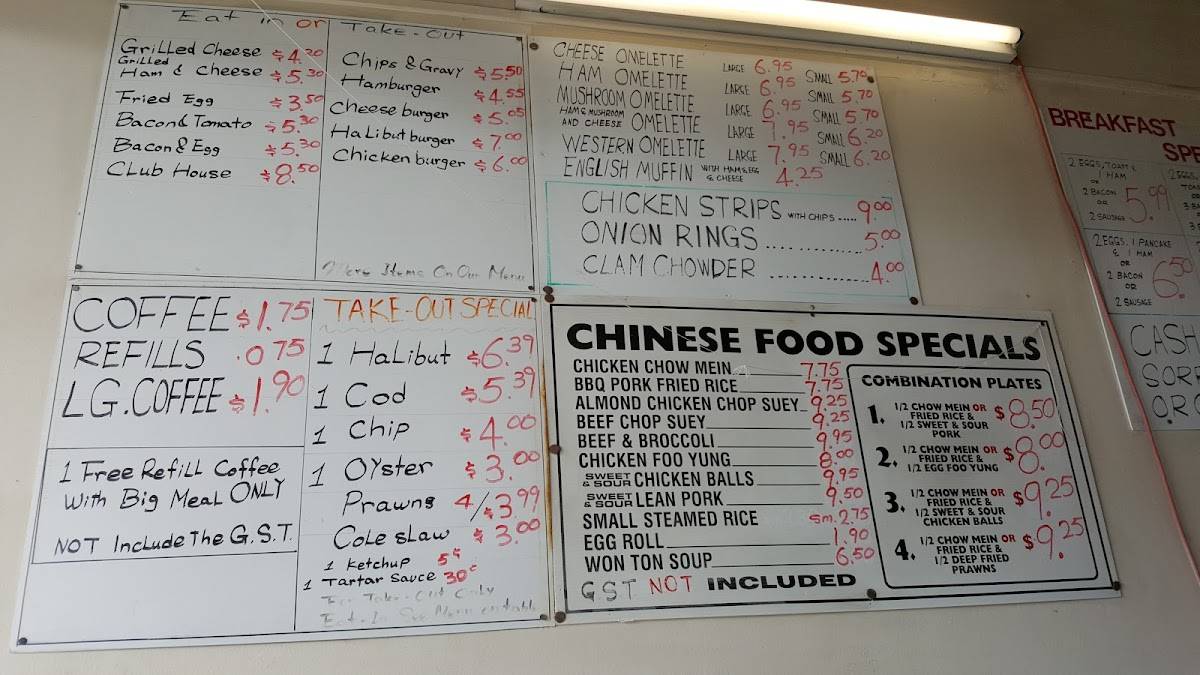 Eat in or Take-Out
Grilled Cheese $4.20
Grilled
Ham & Cheese $5.30
Fried Egg $3.50
Bacon & Tomato $5.30
Bacon & Egg $5.30
Club House $8.50
Chips & Gravy $5.50
Hamburger $4.55
Cheese burger $5.05
Halibut burger $7.00
Chicken burger $6.00
More Items On Our Menu
CHEESE OMELETTE LARGE 6.95 SMALL 5.70
HAM OMELETTE LARGE 6.95 SMALL 5.70
MUSHROOM OMELETTE LARGE 6.95 SMALL 5.70
HAM & MUSHROOM
AND CHEESE OMELETTE LARGE 7.95 SMALL 6.20
WESTERN OMELETTE LARGE 7.95 SMALL 6.20
ENGLISH MUFFIN WITH HAM & EGG
& CHEESE 4.25
CHICKEN STRIPS WITH CHIPS ..... 9.00
ONION RINGS ............ 5.00
CLAM CHOWDER ............ 4.00
COFFEE $1.75
REFILLS .075
LG. COFFEE $1.90
1 Free Refill Coffee
With Big Meal ONLY
NOT Include The G.S.T.
TAKE-OUT SPECIAL
1 Halibut $6.39
1 Cod $5.39
1 Chip $4.00
1 Oyster $3.00
Prawns 4/$3.99
Cole slaw $3.00
1 Ketchup 5¢
1 Tartar Sauce 30¢
For Take-Out Only
Eat-In See Menu
CHINESE FOOD SPECIALS
CHICKEN CHOW MEIN 7.75
BBQ PORK FRIED RICE 7.75
ALMOND CHICKEN CHOP SUEY 9.25
BEEF CHOP SUEY 9.25
BEEF & BROCCOLI 9.95
CHICKEN FOO YUNG 8.00
SWEET & SOUR CHICKEN BALLS 9.95
SWEET & SOUR LEAN PORK 9.50
SMALL STEAMED RICE Sm. 2.75
EGG ROLL 1.90
WON TON SOUP 6.50
GST NOT INCLUDED
COMBINATION PLATES
1. 1/2 CHOW MEIN OR
FRIED RICE &
1/2 SWEET & SOUR
PORK $8.50
2. 1/2 CHOW MEIN OR
FRIED RICE &
1/2 EGG FOO YUNG $8.00
3. 1/2 CHOW MEIN OR
FRIED RICE &
1/2 SWEET & SOUR
CHICKEN BALLS $9.25
4. 1/2 CHOW MEIN OR
FRIED RICE &
1/2 DEEP FRIED
PRAWNS $9.25
BREAKFAST
SPE
2 EGGS, TOAST &
1 HAM
OR
2 BACON
OR
2 SAUSAGE
5.99
2 EGGS, 1 PANCAKE
& 1 HAM
OR
2 BACON
OR
2 SAUSAGE
6.50
CASH
SORR
OR